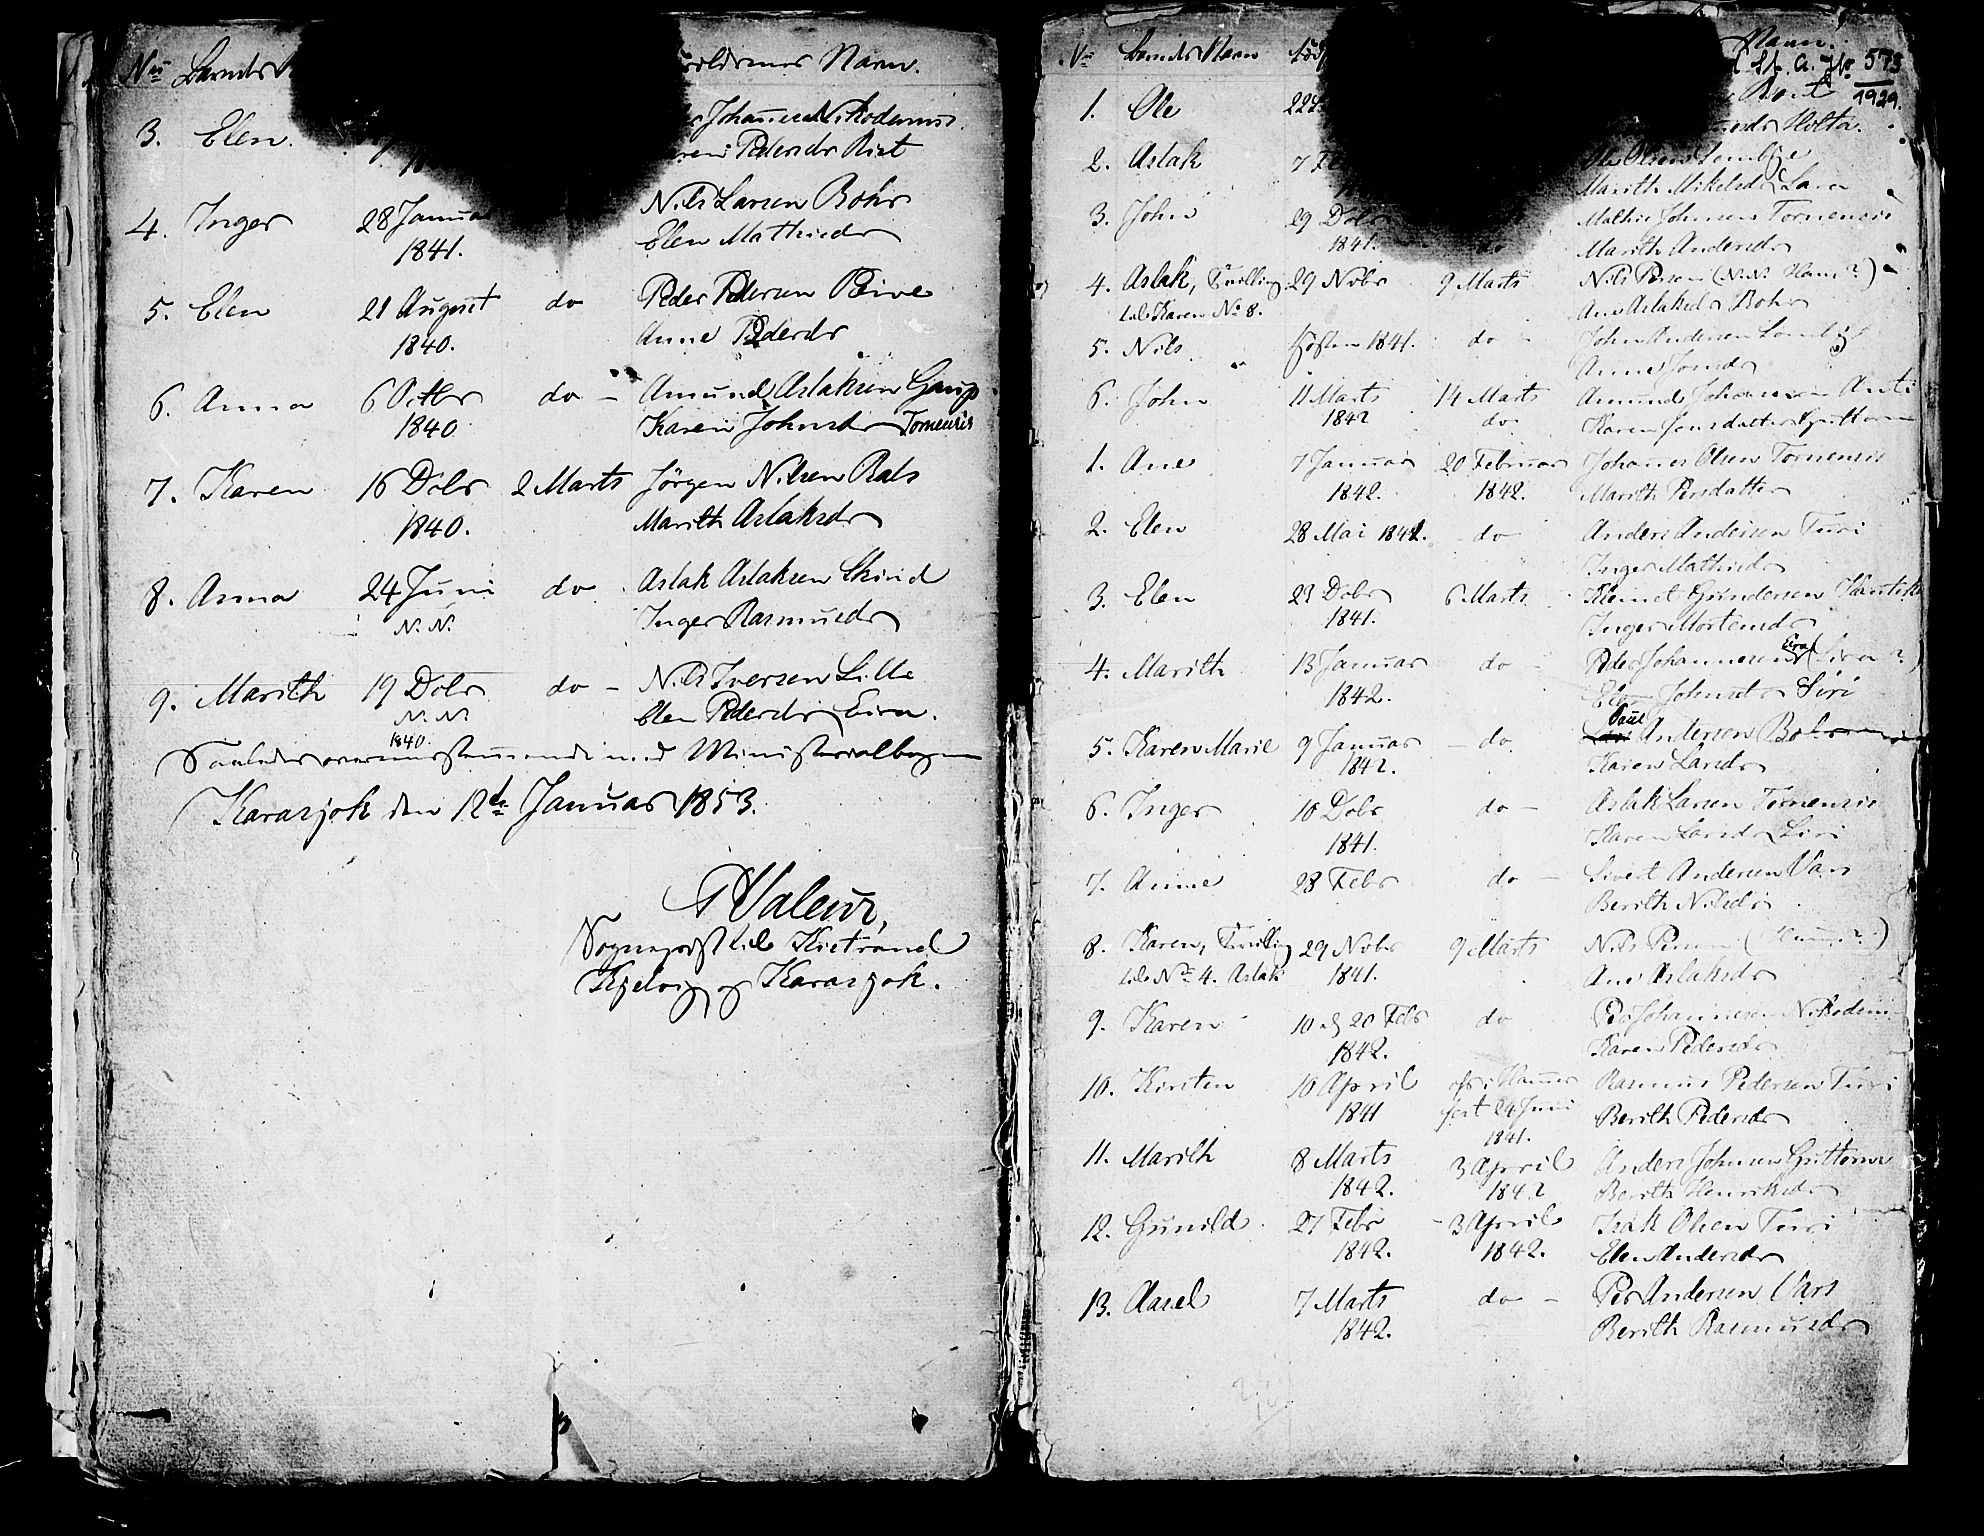 No Barnets Forældrenes Navn.
3. Elen. Johannesen Nikodemus
Pedersdr Rist
4. Inger 28 Januar Nils Larsen Bohr
1841. Elen Mathisdr
5. Elen 21 August do Peder Pedersen Beive
1840. Anne Pedersdr
6. Anna 6 Octbr do – Amund Aslaksen Gaup
1840 Karen Johnsdr Tornensis
7. Karen 16 Dcbr 2 Marts Jörgen Nilsen Bals
1840. Marith Aslaksdr
8. Anna 24 Juni do Aslak Aslaksen Skind
N. N. Inger Rasmusdr
9. Marith 19 Dcbr do – Nils Iversen Lille
N. N. Elen Pedersdr Eira.
1840.
Saaledes overensstemmende med Ministerialbogen
Karasjok den 12te Januar 1853.
Valeur,
Sogneprest til Kistrand
Kjelvig og Karasjok.
No Barnets Navn Navn.
St. A. Jk 573
1929.
1. Ole
Holta.
2. Aslak 7 Ole Olsen Somby
Marith Mikelsdr Sara
3. John 29 Dcbr Mathis Johnsen Tornensis
1841. do Marith Andersdr
4. Aslak, Tvilling 29 Novbr 9 Marts Nils Persen (N.N. ?)
til Karen No 8. Ane Aslaksdr Bohr
5. Nils Høsten 1841. do – John Andersen Somby
Anne Jonsdr
6. John 11 Marts 14 Marts Amund Johansen Anti
1842 do Karen Jonsdatter Guttorm
1. Ane 7 Januar 20 Februar Johannes Olsen Tornensis
1842. 1842. Marith Persdatter
2. Elen 28 Mai 1841. do Anders Andersen Turi
Inger Mathisdr
3. Elen 23 Dcbr 6 Marts Klemet Gundersen
1841. Inger Mortensdr
4. Marith 13 Januar do – Peder Johannesen Eira (Sira?)
1842. Elen Johnsdr Siri
5. Karen Marie 9 Januar – do Paul Andersen
1842. Karen Larsdr
6. Inger 10 Dcbr do – Aslak Larsen Tornensis
1841. Karen Larsdr Siri
7. Anne 28 Febr do – Sivert Andersen Vars
Berith Nilsdr
8. Karen, Tvilling 29 Novbr 9 Marts Nils Persen
til No 4. Aslak 1841. Ane Aslaksdr
9. Karen 10 20 Febr do Per Johannesen Nikodemus
1842. Karen Pedersdr
10. Kirsten 10 April Hammer Rasmus Pedersen Turi
1841 fest 24 Juni Berith Pedersdr
1841.
11. Marith 8 Marts 3 April Anders Johnsen Guttorm
1842. 1842 Berith Henriksdr
12. Gunild. 27 Febr – 3 April Isak Olsen Turi
1842. 1842. Elen Andersdr
13. Aasel 7 Marts do – Per Andersen Vars
1842. Berith Rasmusdr